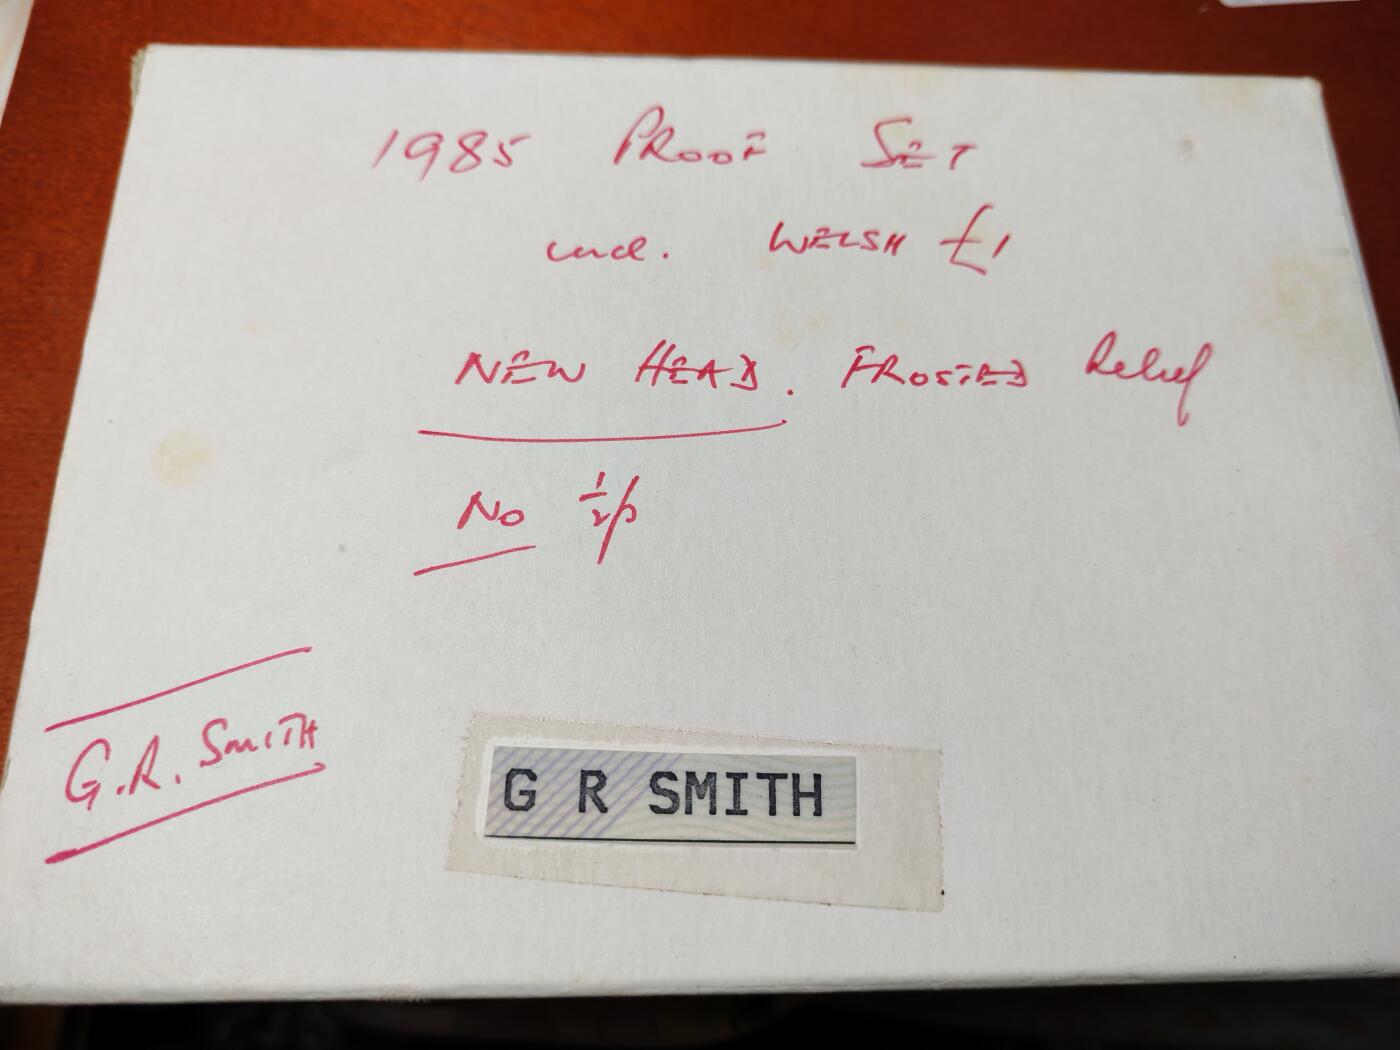 1985 PROOF SET
incl. WELSH £1
NEW HEAD. FROSTED Relief
No ½p
G.R. SMITH
G R SMITH